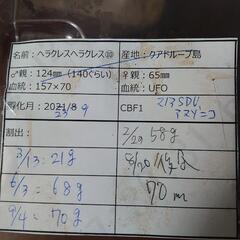 名前：ヘラクレスヘラクレス⑩
産地：グアドループ島
♂親：124㎜（140ぐらい）
♀親：65㎜
血統：157×70
血統：UFO
孵化月：2021/8
23 9
CBF1
213SDL
アマゾニコ
割出：
2/29 58g
3/13=21g
8/20
6/3=68g
70m
9/4=70g